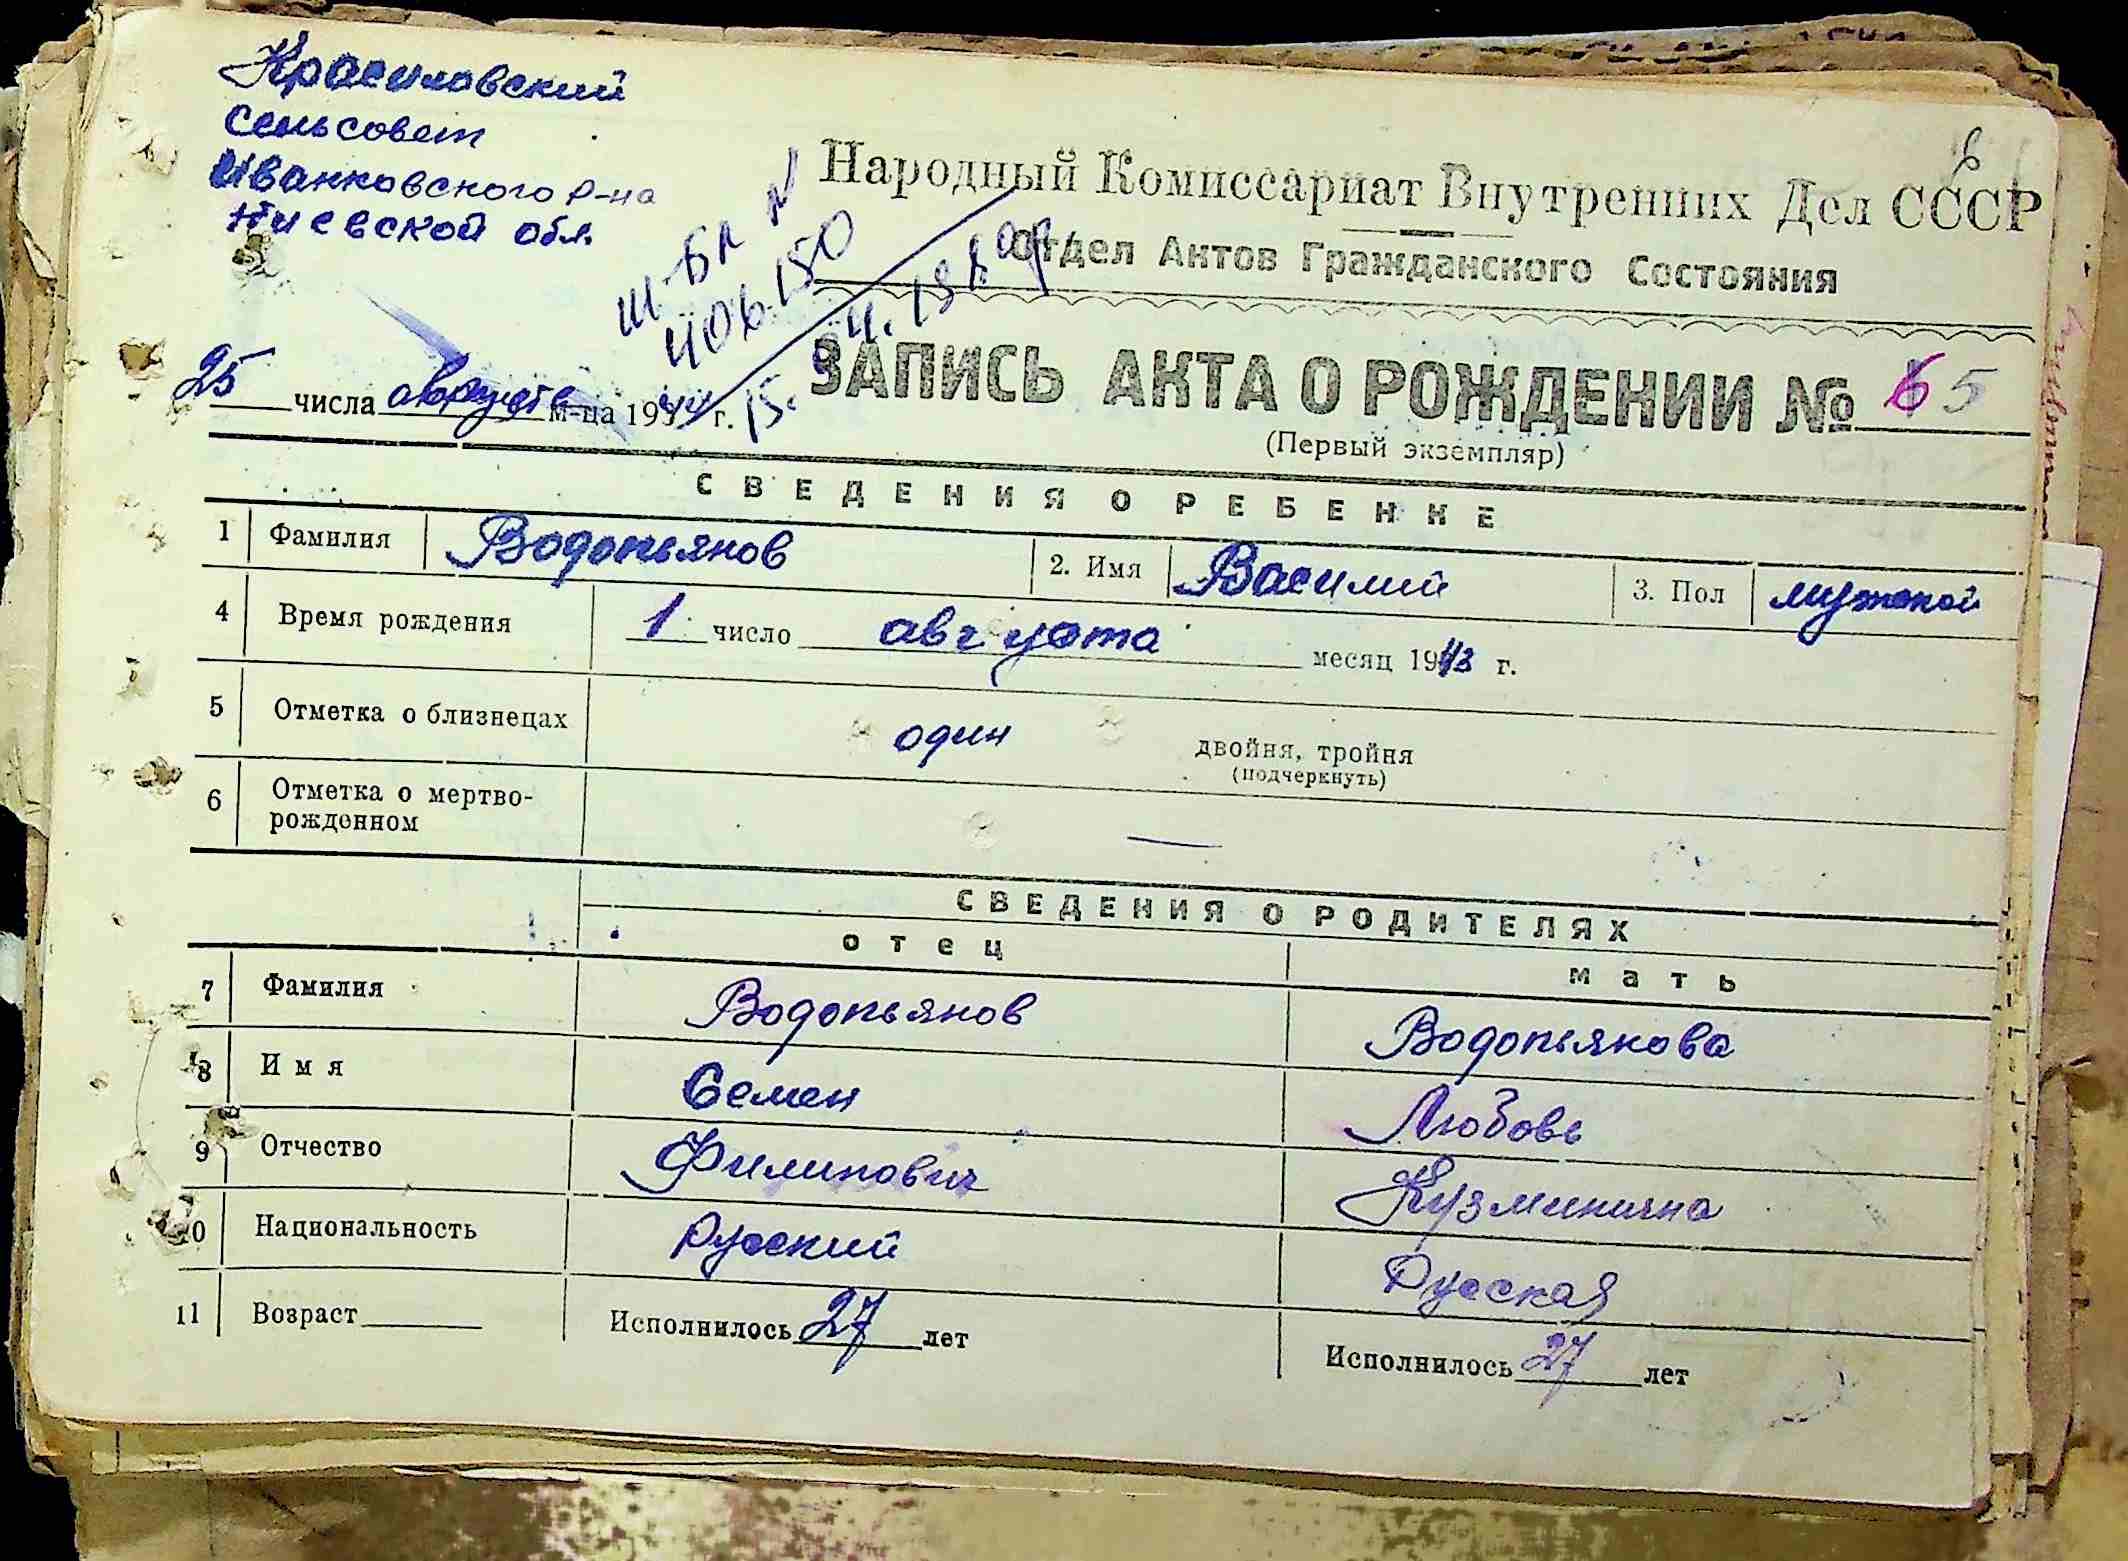 Красиловский
сельсовет
Иванковского р-на
Киевской обл.
6
Народный Комиссариат Внутренних Дел СССР
Отдел Актов Гражданского Состояния
ЗАПИСЬ АКТА О РОЖДЕНИИ № 65
(Первый экземпляр)
25 числа августа м-ца 1944 г.
СВЕДЕНИЯ О РЕБЕНКЕ
1 Фамилия Водопьянов 2. Имя Василий 3. Пол мужской
4 Время рождения 1 число августа месяц 1943 г.
5 Отметка о близнецах один двойня, тройня
(подчеркнуть)
6 Отметка о мертво-
рожденном —
СВЕДЕНИЯ О РОДИТЕЛЯХ
отец мать
7 Фамилия Водопьянов Водопьянова
8 Имя Семен Любовь
9 Отчество Филипович Кузминична
10 Национальность Русский Русская
11 Возраст Исполнилось 27 лет Исполнилось 27 лет